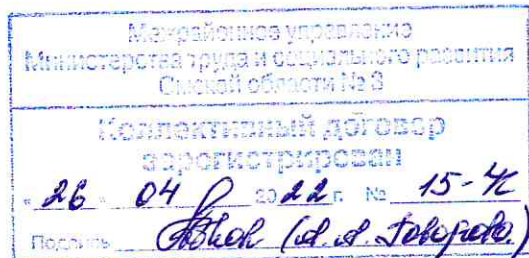 Межрайонное управление
Министерства труда и социального развития
Омской области № 3
Коллективный договор
зарегистрирован
" 26 " 04 20 22 г. № 15-К
Подпись (А. А. Говорова)